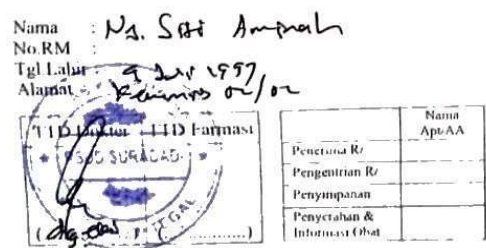 Nama : Ny. Siti Aminah
No.RM
Tgl Lahir : 9 Juli 1997
Alamat : 02/02
TTD Dokter TTD Farmasi
RSUD SURADADI
TEGAL
( ) (..............)
Nama
Apt/AA
Penerima R/
Pengentrian R/
Penyimpanan
Penyerahan &
Informasi Obat